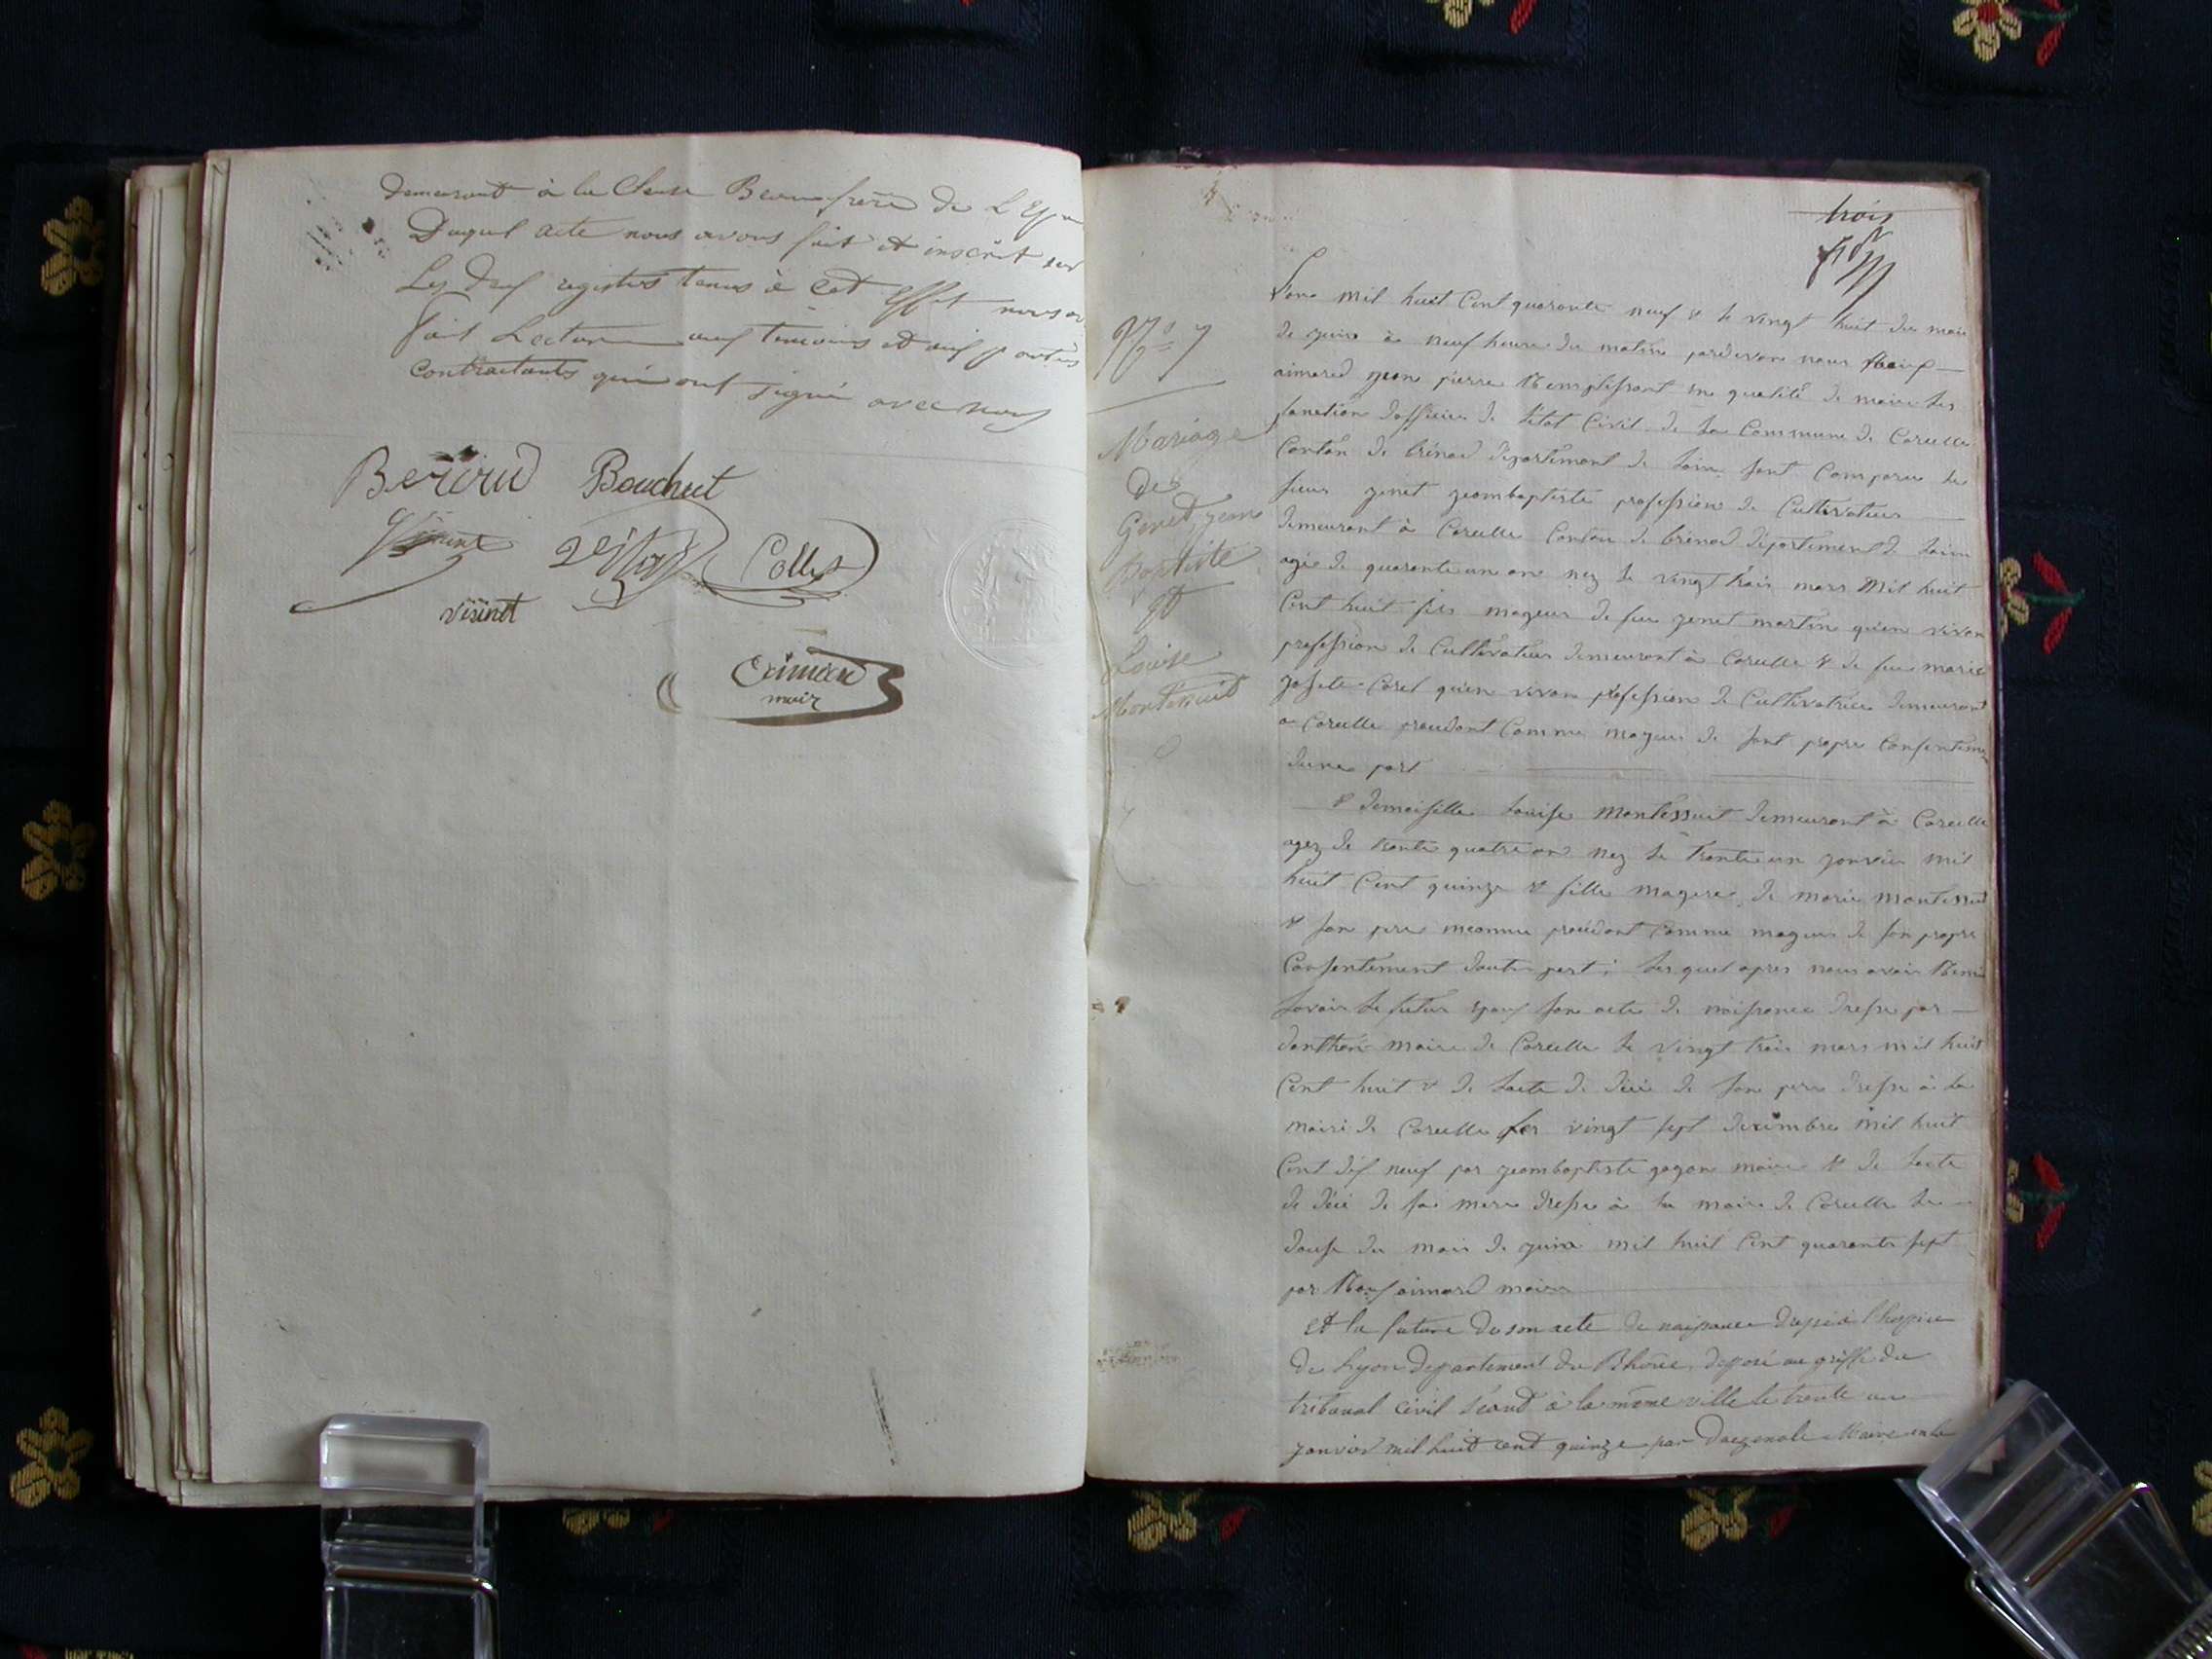 demeurant à la Cluse Beaufrère de L'Ep
Duquel acte nous avons fait et inscrit sur
Les deux registres tenus à cet Effet nous a
fait Lecture aux temoins et aux parties
Contractants qui ont signé avec nous
Beroud Bouchut
Collet
visinet
Eimard
mair
trois
N° 7
Mariage
des
Genet, jean
baptiste
et
Louise
Montessuit
Lans mil huit Cent quarente neuf & le vingt huit du mois
de juin à neuf heure du matin pardevan nous
aimard jean pierre Remplissant en qualité de maire les
fonction dofficier de létat Civil de la Commune de Corcelle
Canton de brénod département de lain sont Comparu le
sieur genet jeanbaptiste profession de Cultivateur
demeurant à Corcelle Canton de brénod département de lain
agé de quarente un an nez le vingt trois mars mil huit
Cent huit fils mageur de feu genet martin quen vivan
profession de Cultivateur demeurant à Corcelle & de feu marie
josete Carel quen vivan profession de Cultivatrice demeurant
a Corcelle procedant Comme mageur de sont propre Consenteme
dune part
& demoiselle Louise Montessuit demeurant à Corcelle
agez de trente quatre an nez le trente un janvier mil
huit Cent quinze & fille mageure de marie montessuit
& son pere inconnu procédant Comme mageur de son propre
Consentement dautre part; lesquel apres nous avoir Remi
savoir le futur epoux son acte de naissance dressé par
danthon maire de Corcelle le vingt trois mars mil huit
Cent huit & de lacte de décé de son pere dressé à la
mairi de Corcelle les vingt sept decembre mil huit
Cent dix neuf par jeanbaptiste gagon maire & de lacte
de décé de sa mere dressé à la mairi de Corcelle le
douse du mois de juin mil huit Cent quarante sept
par aimard maire
Et la future de son acte de naissance dressé à l'hospice
de Lyon departement du Rhône, déposé au griffe du
tribunal civil séant à la même ville le trente un
janvier mil huit cent quinze par Maire